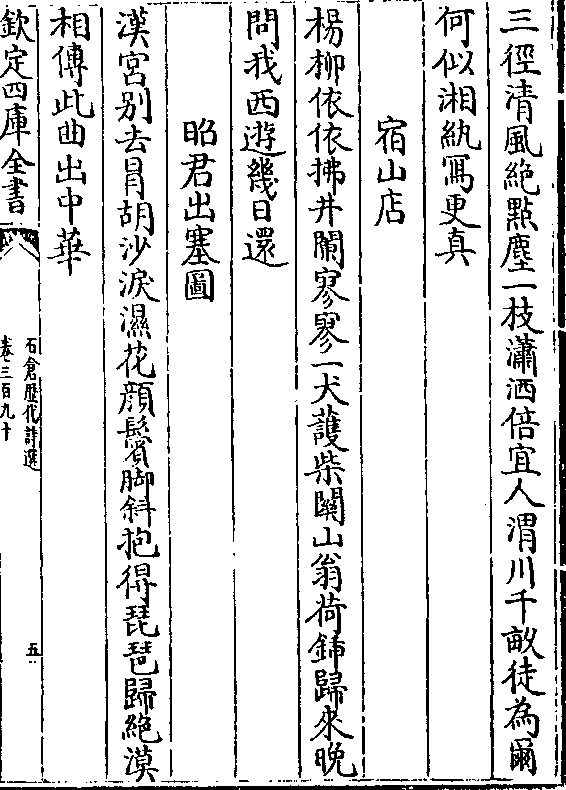 三徑清風絶㸃塵一枝瀟洒倍宜人渭川千畝徒為爾
何似湘紈寫更真
宿山店
楊柳依依拂井闌寥寥一犬護柴闗山翁荷鍤歸來晩
問我西遊幾日還
昭君出塞圖
漢宮别去冐胡沙淚濕花顔鬢脚斜抱得琵琶歸絶漠
相傳此曲出中華
欽定四庫全書
石倉歴代詩選
卷三百九十
五